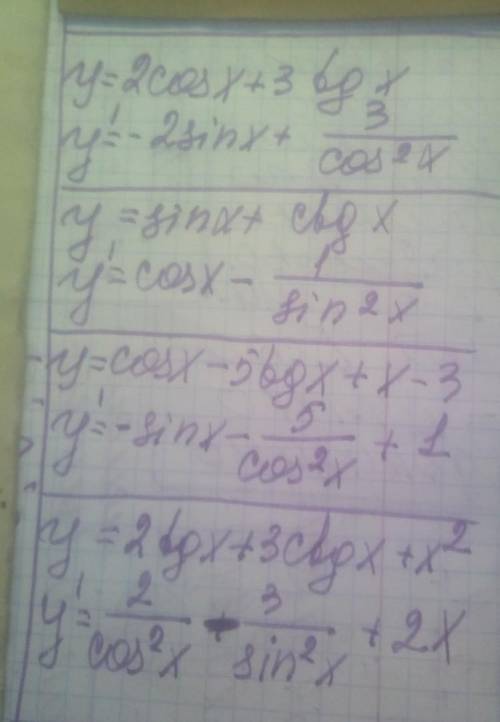 y=2cosx+3 tgx
y'=-2sinx+ 3/cos²x
y=sinx+ ctgx
y'=cosx- 1/sin²x
y=cosx-5tgx+x-3
y'=-sinx- 5/cos²x +1
y=2tgx+3ctgx+x²
y'= 2/cos²x - 3/sin²x +2x